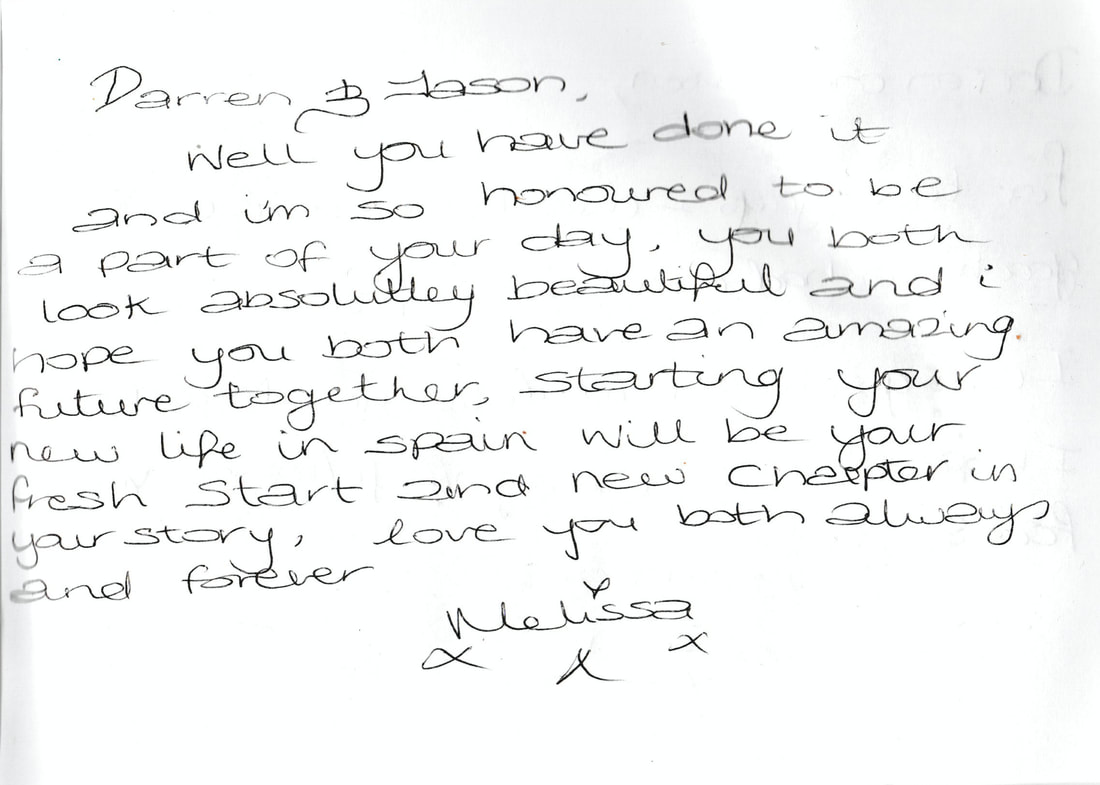 Darren & Jason,
Well you have done it
and i'm so honoured to be
a part of your day, you both
look absolutley beautiful and i
hope you both have an amazing
future together, starting your
new life in spain will be your
fresh start and new chapter in
your story, love you both always
and forever
Melissa
x x x